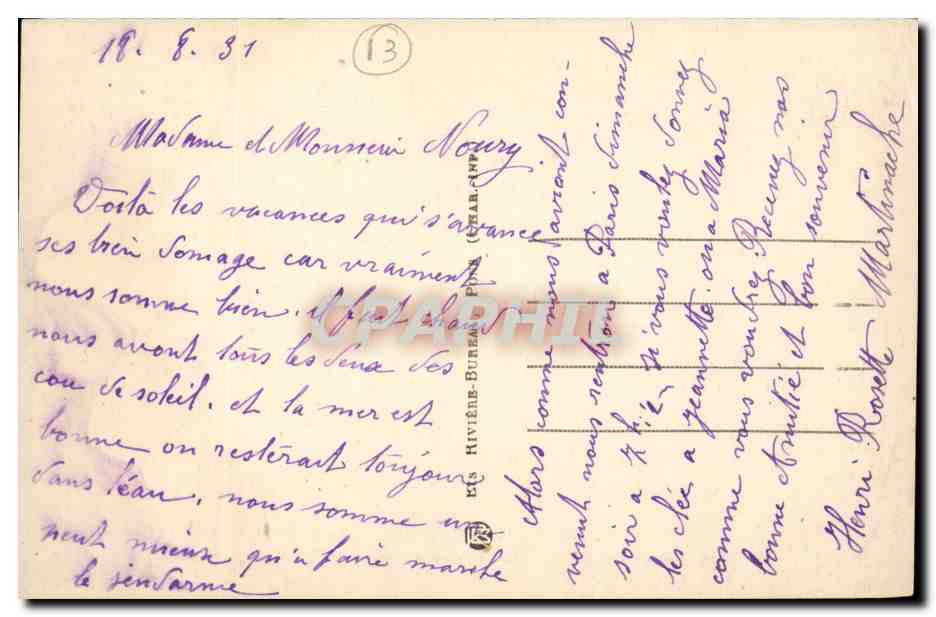 18. 8. 31
13
Madame et Monsieur Noury
Voila les vacances qui s'avance
ses bien domage car vraiment
nous somme bien. il fait chaud
nous avont tous les deux des
cou de soleil. et la mer est
bonne on resterait toujour
dans l'éau. nous somme un
peut mieux qu'a faire marche
le jendarme
Alors comme nous aviont con-
venut nous rentron a Paris Dimanche
soir a 7h ½ si vous voulez donnez
les clée a Jeannette. ou a Maria
comme vous voudrez Recevez nos
bonne Amitié et bon souvenir
Henri Rosette Martinache
Ets RIVIÈRE-BUREAU PONS (CHAR.-INF
CPARPHIL